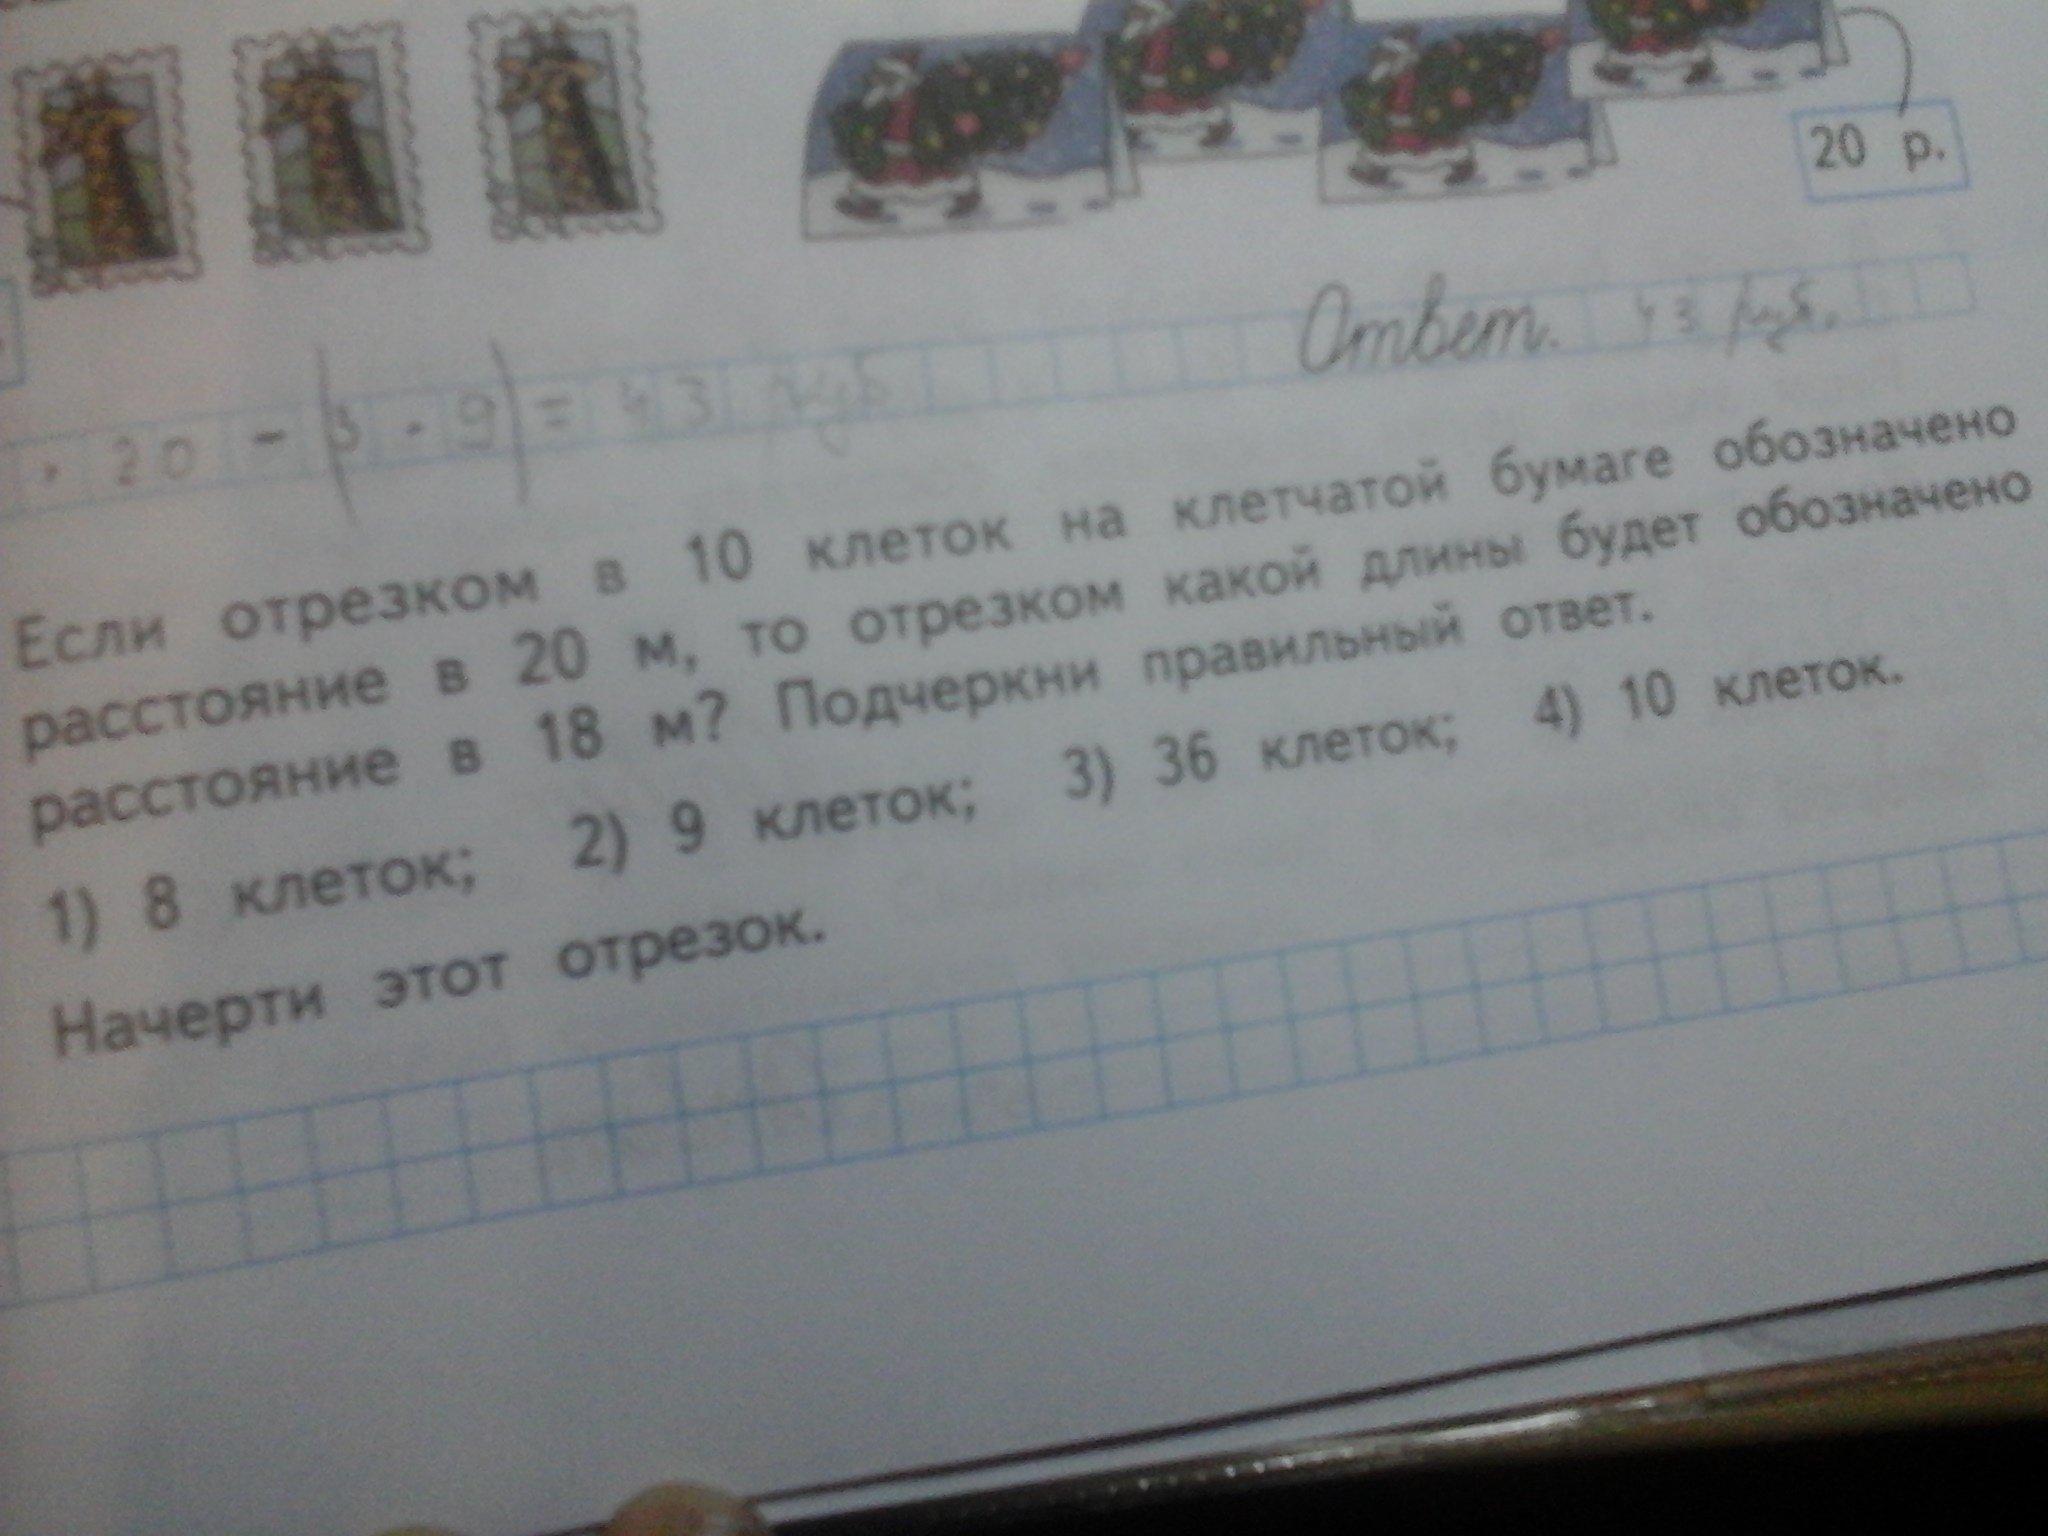 20 р.
Ответ. 43 руб.
· 20 - (3 · 9) = 43 руб
Если отрезком в 10 клеток на клетчатой бумаге обозначено
расстояние в 20 м, то отрезком какой длины будет обозначено
расстояние в 18 м? Подчеркни правильный ответ.
1) 8 клеток; 2) 9 клеток; 3) 36 клеток; 4) 10 клеток.
Начерти этот отрезок.